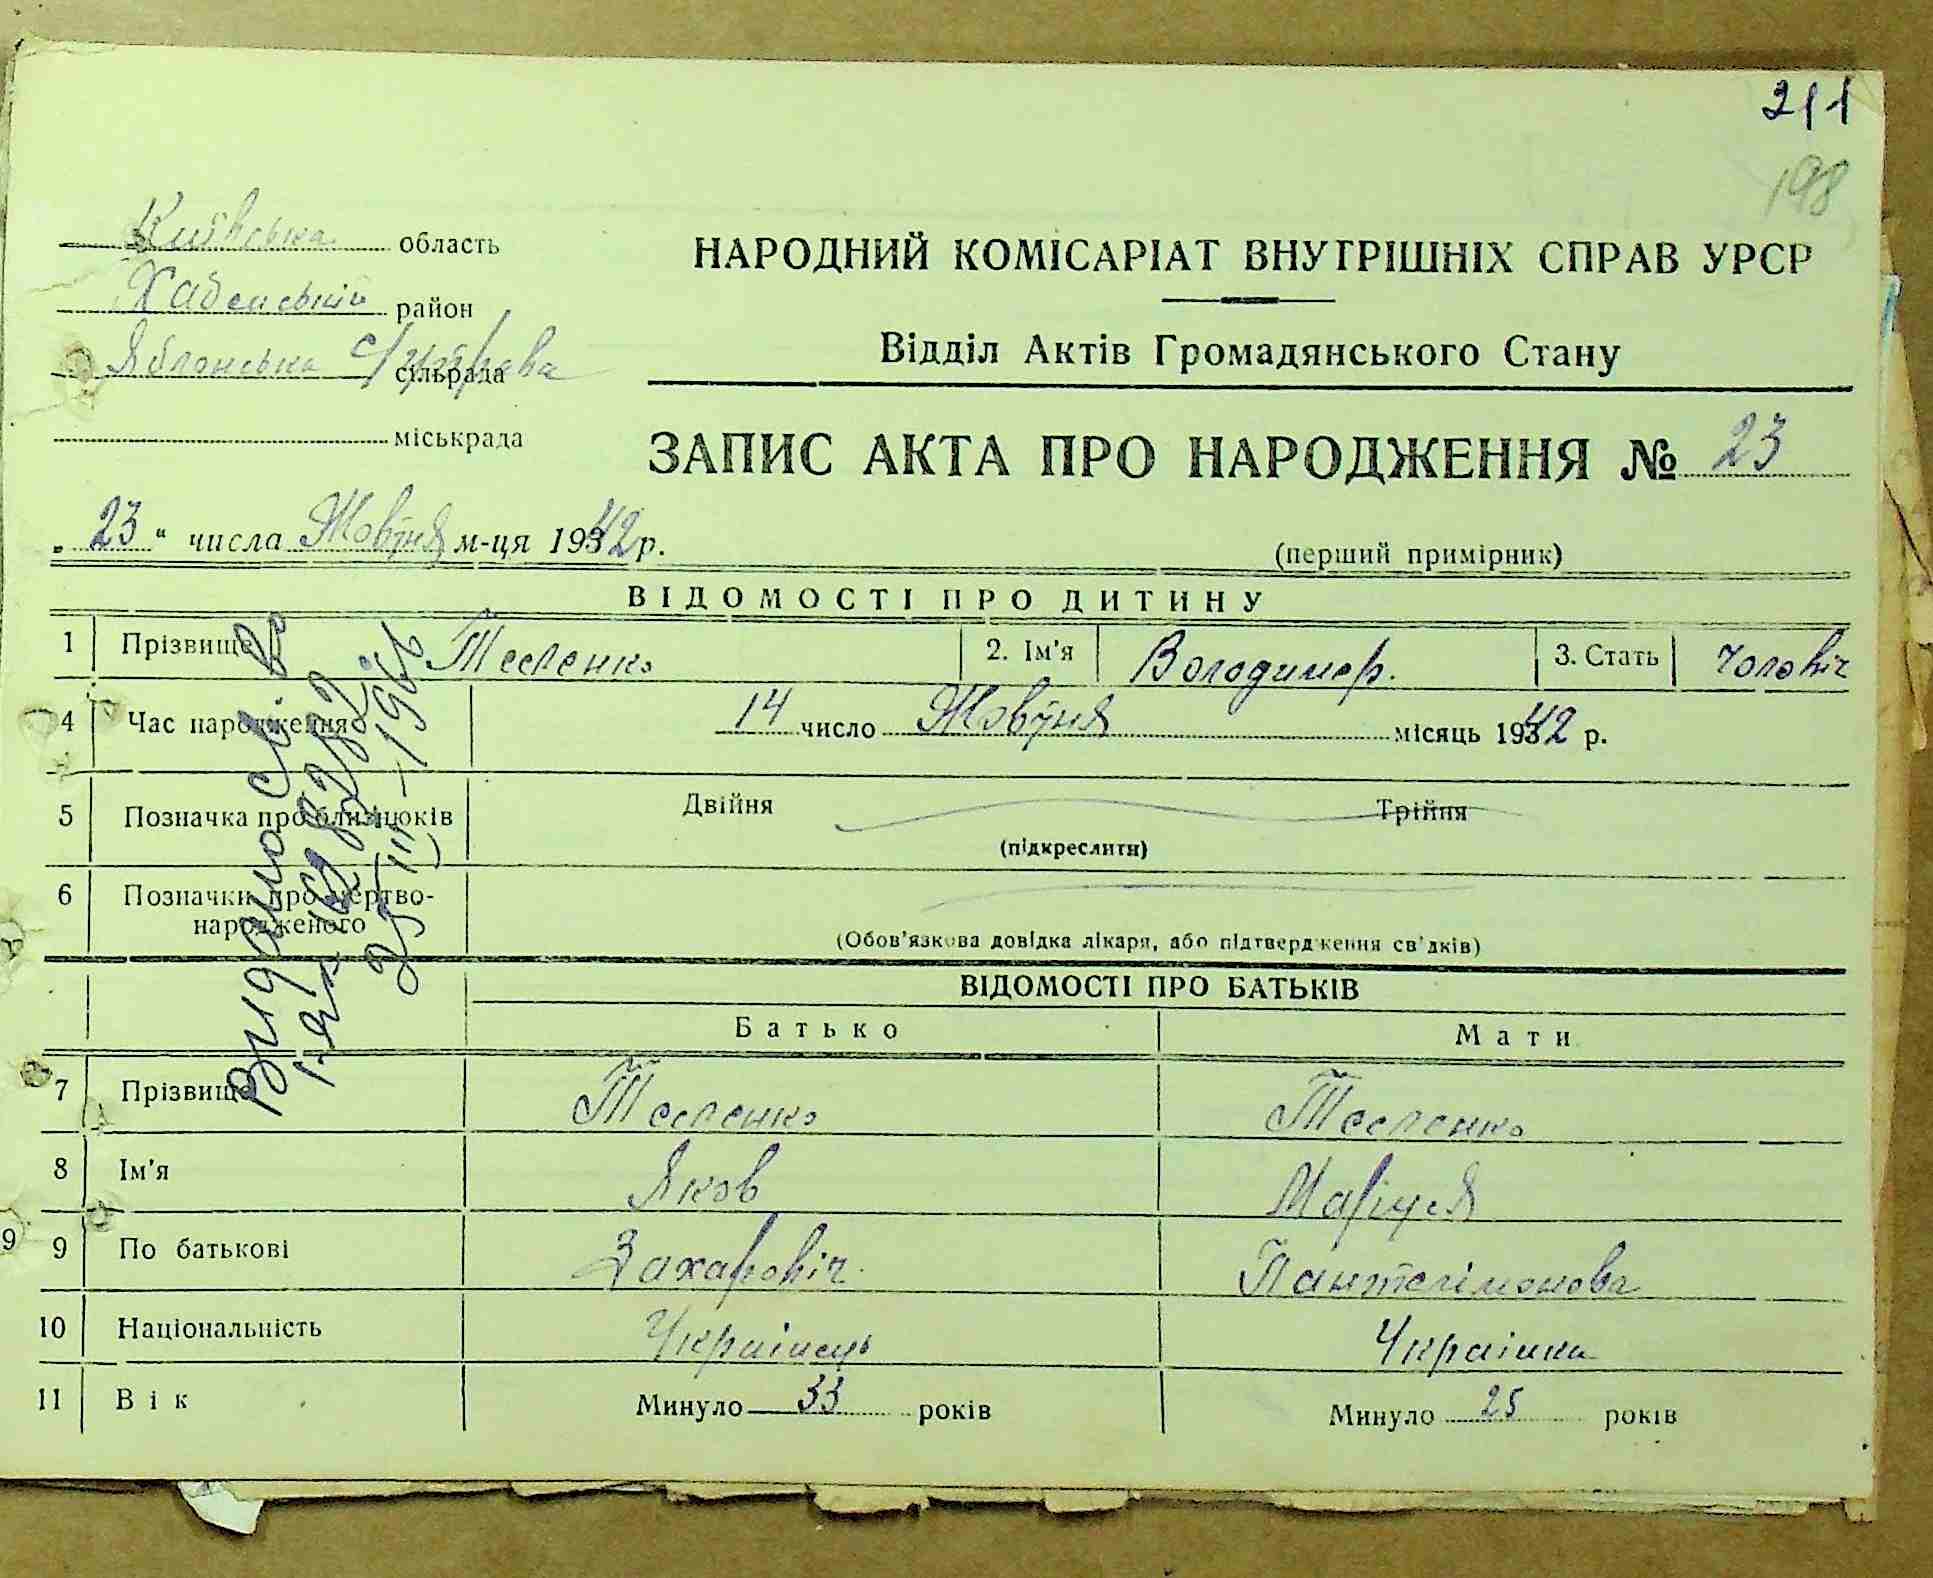 211
198
Київська область
Хабенський район
Яблонська с/управа сільрада
міськрада
НАРОДНИЙ КОМІСАРІАТ ВНУТРІШНІХ СПРАВ УРСР
Відділ Актів Громадянського Стану
ЗАПИС АКТА ПРО НАРОДЖЕННЯ № 23
„ 23 “ числа Жовтня м-ця 1942 р.
(перший примірник)
ВІДОМОСТІ ПРО ДИТИНУ
1 Прізвище Тесленко 2. Ім'я Володимер. 3. Стать чоловіч
4 Час народження 14 число Жовтня місяць 1942 р.
5 Позначка про близнюків Двійня Трійня
(підкреслити)
6 Позначки про мертво-
народженого
(Обов'язкова довідка лікаря, або підтвердження св'дків)
ВІДОМОСТІ ПРО БАТЬКІВ
Батько Мати
7 Прізвище Тесленко Тесленко
8 Ім'я Яков Маріуся
9 9 По батькові Захаровіч. Пантелімонова
10 Національність Українець Українка
11 Вік Минуло 33 років Минуло 25 років
Видано